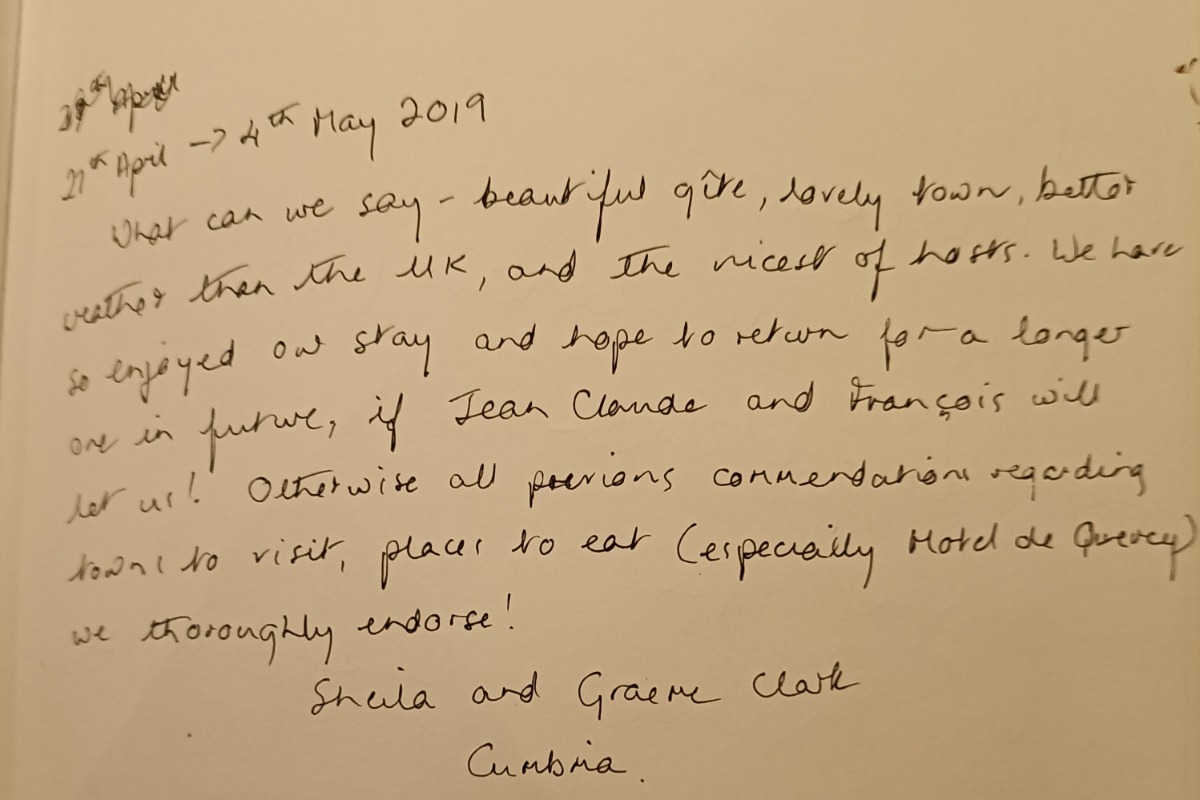 April
27th April → 4th May 2019
What can we say - beautiful gîte, lovely town, better
weather than the UK, and the nicest of hosts. We have
so enjoyed our stay and hope to return for a longer
one in future, if Jean Claude and François will
let us! Otherwise all previous commendations regarding
towns to visit, places to eat (especially Hotel de Quercy)
we thoroughly endorse!
Sheila and Graeme Clark
Cumbria.